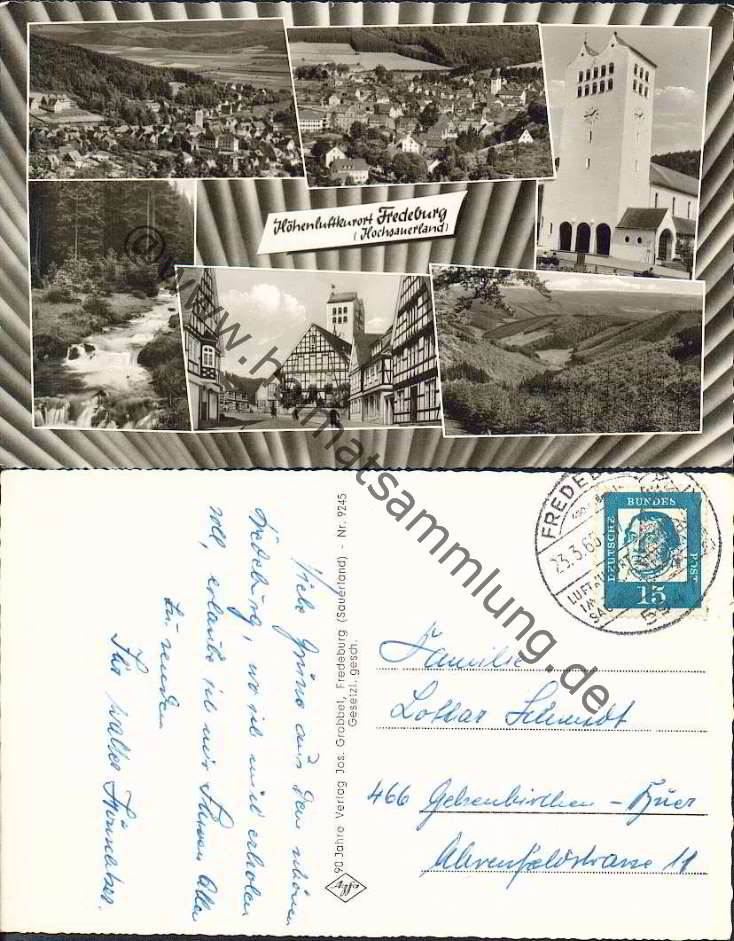 Höhenluftkurort Fredeburg
(Hochsauerland)
@www.heimatsammlung.de
FREDEBU
23.3.65
LUFTKURORT
IM
SAU
DEUTSCHE
BUNDES
POST
15
90 Jahre Verlag Jos. Grobbel, Fredeburg (Sauerland) - Nr. 9245
Gesetzl. gesch.
Liebe Grüße aus dem schönen
Fredeburg, wo ich mich erholen
soll, erlaube ich mir Ihnen allen
zu senden
Ihr Walter
Familie
Lothar Schmidt
466 Gelsenkirchen - Buer
Ahrenfeldstrasse 11